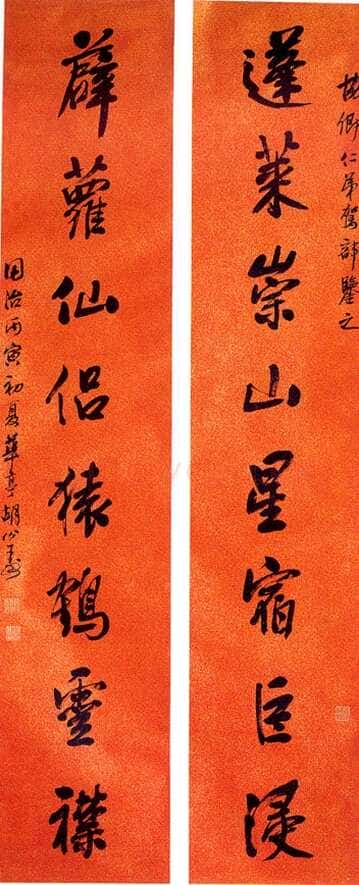 蓬萊崇山星宿巨浸
仁弟駕部鑒之
薜蘿仙侶猿鶴靈襟
同治丙寅初夏華亭胡公壽